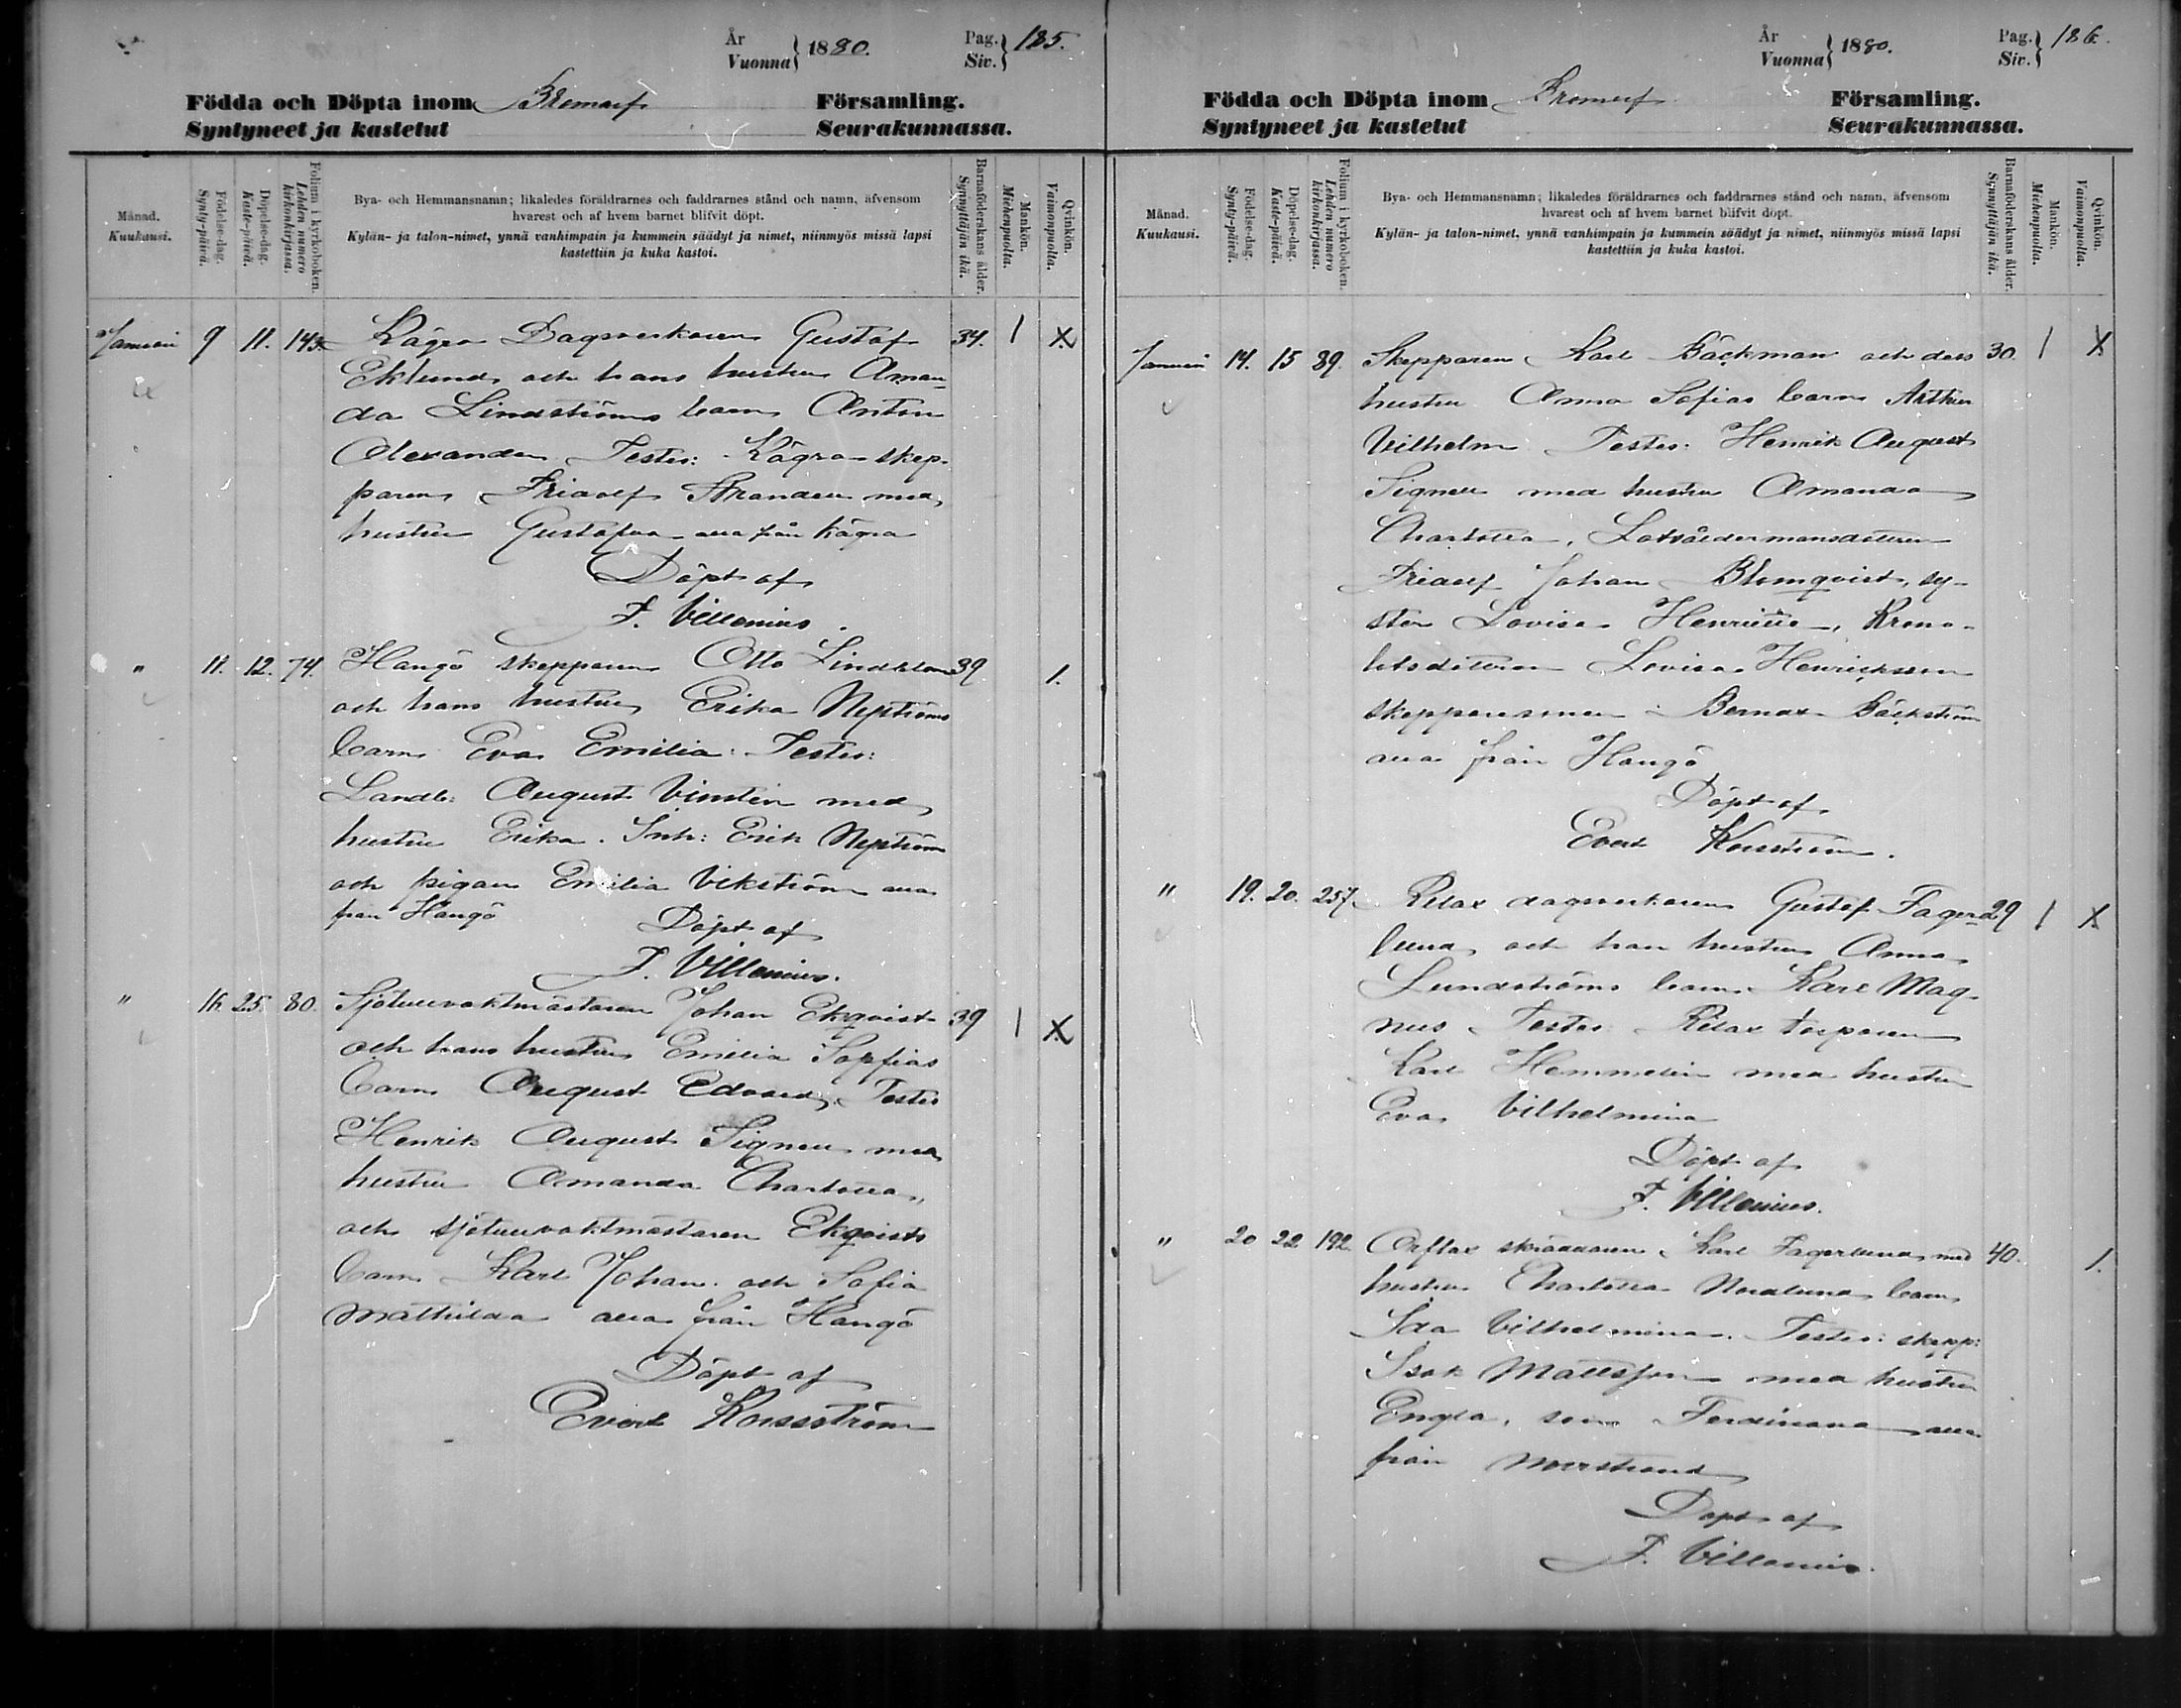 År
Vuonna } 1880.
Pag.
Siv. } 185.
Födda och Döpta inom Bromarf Församling.
Syntyneet ja kastetut Seurakunnassa.
Månad.
Kuukausi.
Födelse-dag.
Synty-päivä.
Döpelse-dag.
Kaste-päivä.
Folium i kyrkoboken.
Lehden numero kirkonkirjassa.
Bya- och Hemmansnamn; likaledes föräldrarnes och faddrarnes stånd och namn, äfvensom
hvarest och af hvem barnet blifvit döpt.
Kylän- ja talon-nimet, ynnä vanhimpain ja kummein säädyt ja nimet, niinmyös missä lapsi
kastettiin ja kuka kastoi.
Barnaföderskans ålder.
Synnyttäjän ikä.
Mankön.
Miehenpuolia.
Qvinkön.
Vaimonpuolia.
Januari 9 11. 143 Kägra Dagsverkaren Gustaf 34. 1 X
Eklund och hans hustru Aman
da Lindströms barn Anton
Alexander Testes: Kägra skep-
paren Fridolf Strander med
hustru Gustafva alla från Kägra
Döpt af
F. Villenius
" 11. 12. 74. Hangö skepparen Otto Lindblom 39 1.
och hans hustru Erika Nyströms
barn Eva Emilia. Testes:
Landb: August Vinstén med
hustru Erika. Inh: Erik Nyström
och pigan Emilia Vikström alla
från Hangö
Döpt af
F. Villenius.
" 16. 25. 80. Sjötullvaktmästaren Johan Ekqvist 39 1 X
och hans hustru Emilia Sofias
barn August Edvard. Testes
Henrik August Signell med
hustru Amanda Charlotta,
och sjötullvaktmästaren Ekqvists
barn Karl Johan och Sofia
Mathilda alla från Hangö
Döpt af
Evert Korsström
År
Vuonna } 1880.
Pag.
Siv. } 186.
Födda och Döpta inom Bromarf Församling.
Syntyneet ja kastetut Seurakunnassa.
Månad.
Kuukausi.
Födelse-dag.
Synty-päivä.
Döpelse-dag.
Kaste-päivä.
Folium i kyrkoboken.
Lehden numero kirkonkirjassa.
Bya- och Hemmansnamn; likaledes föräldrarnes och faddrarnes stånd och namn, äfvensom
hvarest och af hvem barnet blifvit döpt.
Kylän- ja talon-nimet, ynnä vanhimpain ja kummein säädyt ja nimet, niinmyös missä lapsi
kastettiin ja kuka kastoi.
Barnaföderskans ålder.
Synnyttäjän ikä.
Mankön.
Miehenpuolia.
Qvinkön.
Vaimonpuolia.
Januari 14. 15 89. Skepparen Karl Bäckman och dess 30. 1 X
hustru Anna Sofias barn Arthur
Vilhelm Testes: Henrik August
Signell med hustru Amanda
Charlotta, Lotsåldermansdittern
Fridolf Johan Blomqvist, sy-
ster Lovisa Henriette, Krono-
lotsdittern Lovisa Henricksson
skepparesonen Bernar Bäckström
alla från Hangö
Döpt af
Evert Korsström.
" 19. 20. 257 Rilax dagsverkaren Gustaf Fager- 29 1 X
lund och han hustru Anna
Lundströms barn Karl Mag-
nus Testes: Rilax torparen
Karl Hemmelin med hustru
Eva Vilhelmina
Döpt af
F. Villenius.
" 20 22 192. Orflax skräddaren Karl Fagerlund med 40. 1.
hustru Charlotta Nordlund barn
Ida Vilhelmina. Testes: skepp:
Isak Mattsson med hustru
Engla, son Ferdinand alla
från Norrstrand
Döpt af
F. Villenius.